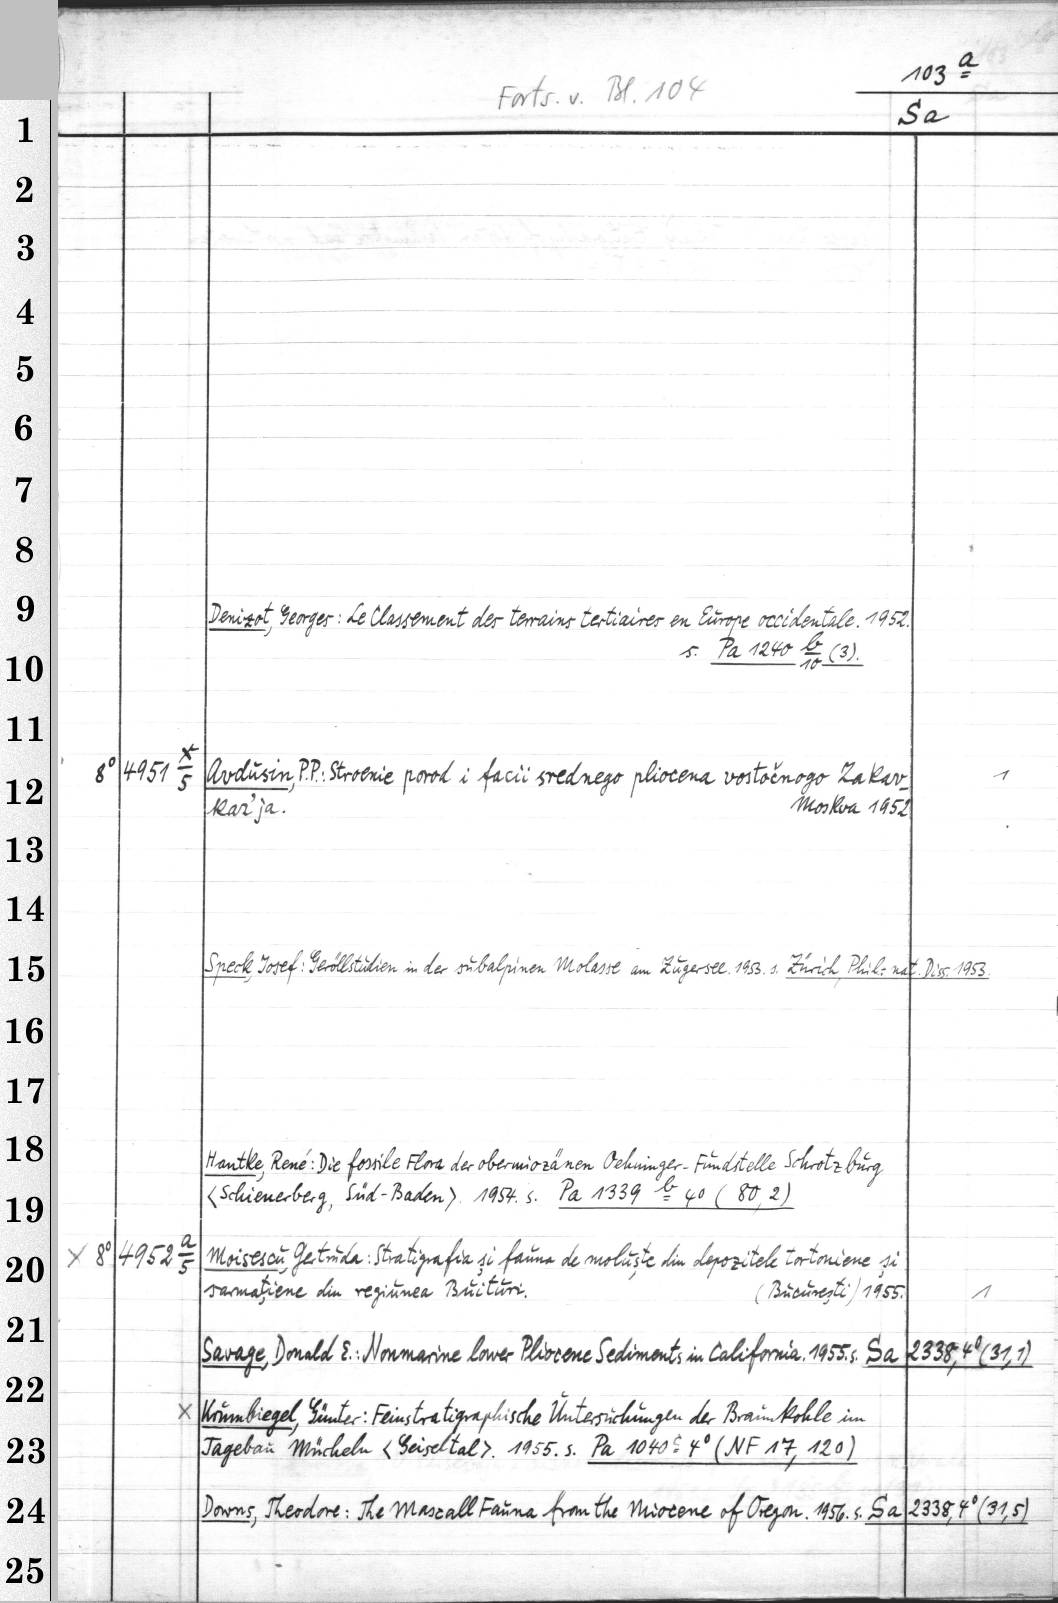 103 a
Forts. v. Bl. 104
Sa
1
2
3
4
5
6
7
8
9
Denizot, Georges: Le Classement des terrains tertiaires en Europe occidentale. 1952.
s. Pa 1240 b/10 (3).
10
11
8° 4951 x/5 Avdusin, P.P.: Stroenie porod i facii srednego pliocena vostočnogo Zakav- 1
12
kaz'ja. Moskva 1952
13
14
15 Speck, Josef: Geröllstudien in der subalpinen Molasse am Zugersee. 1953. s. Zürich, Phil.-nat. Diss. 1953.
16
17
18 Hantke, René: Die fossile Flora der obermiozänen Oehninger-Fundstelle Schrotzburg
<Schienerberg, Süd-Baden>. 1954. s. Pa 1339 b 40 (80,2)
19
x 8° 4952 a/5 Moisescu, Gertruda: Stratigrafia și fauna de moluște din depozitele tortoniene și
20
sarmațiene din regiunea Buituri. (București) 1955. 1
21
Savage, Donald E.: Nonmarine lower Pliocene Sediments in California. 1955. s. Sa 2338, 4° (31,1)
22
x Krumbiegel, Günter: Feinstratigraphische Untersuchungen der Braunkohle im
23 Tagebau Mücheln <Geiseltal>. 1955. s. Pa 1040 c 4° (NF 17, 120)
24 Downs, Theodore: The Mascall Fauna from the Miocene of Oregon. 1956. s. Sa 2338, 4° (31,5)
25